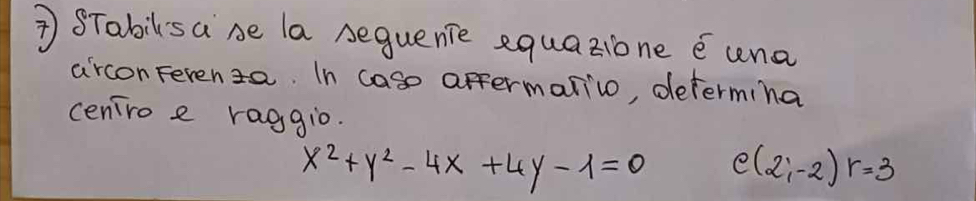 7) Stabilisci se la seguente equazione é una
circonferenza. In caso affermativo, determina
centro e raggio.
x²+y²-4x+4y-1=0 e(2;-2) r=3